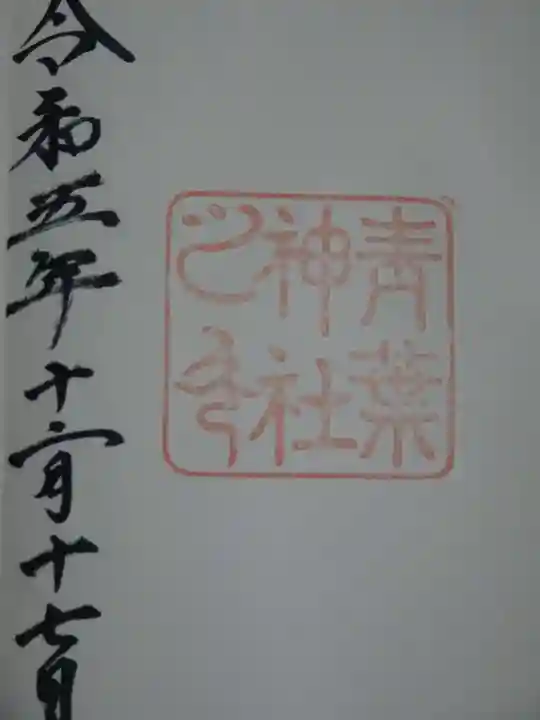 青葉
神社
之印
令和五年十二月十七日